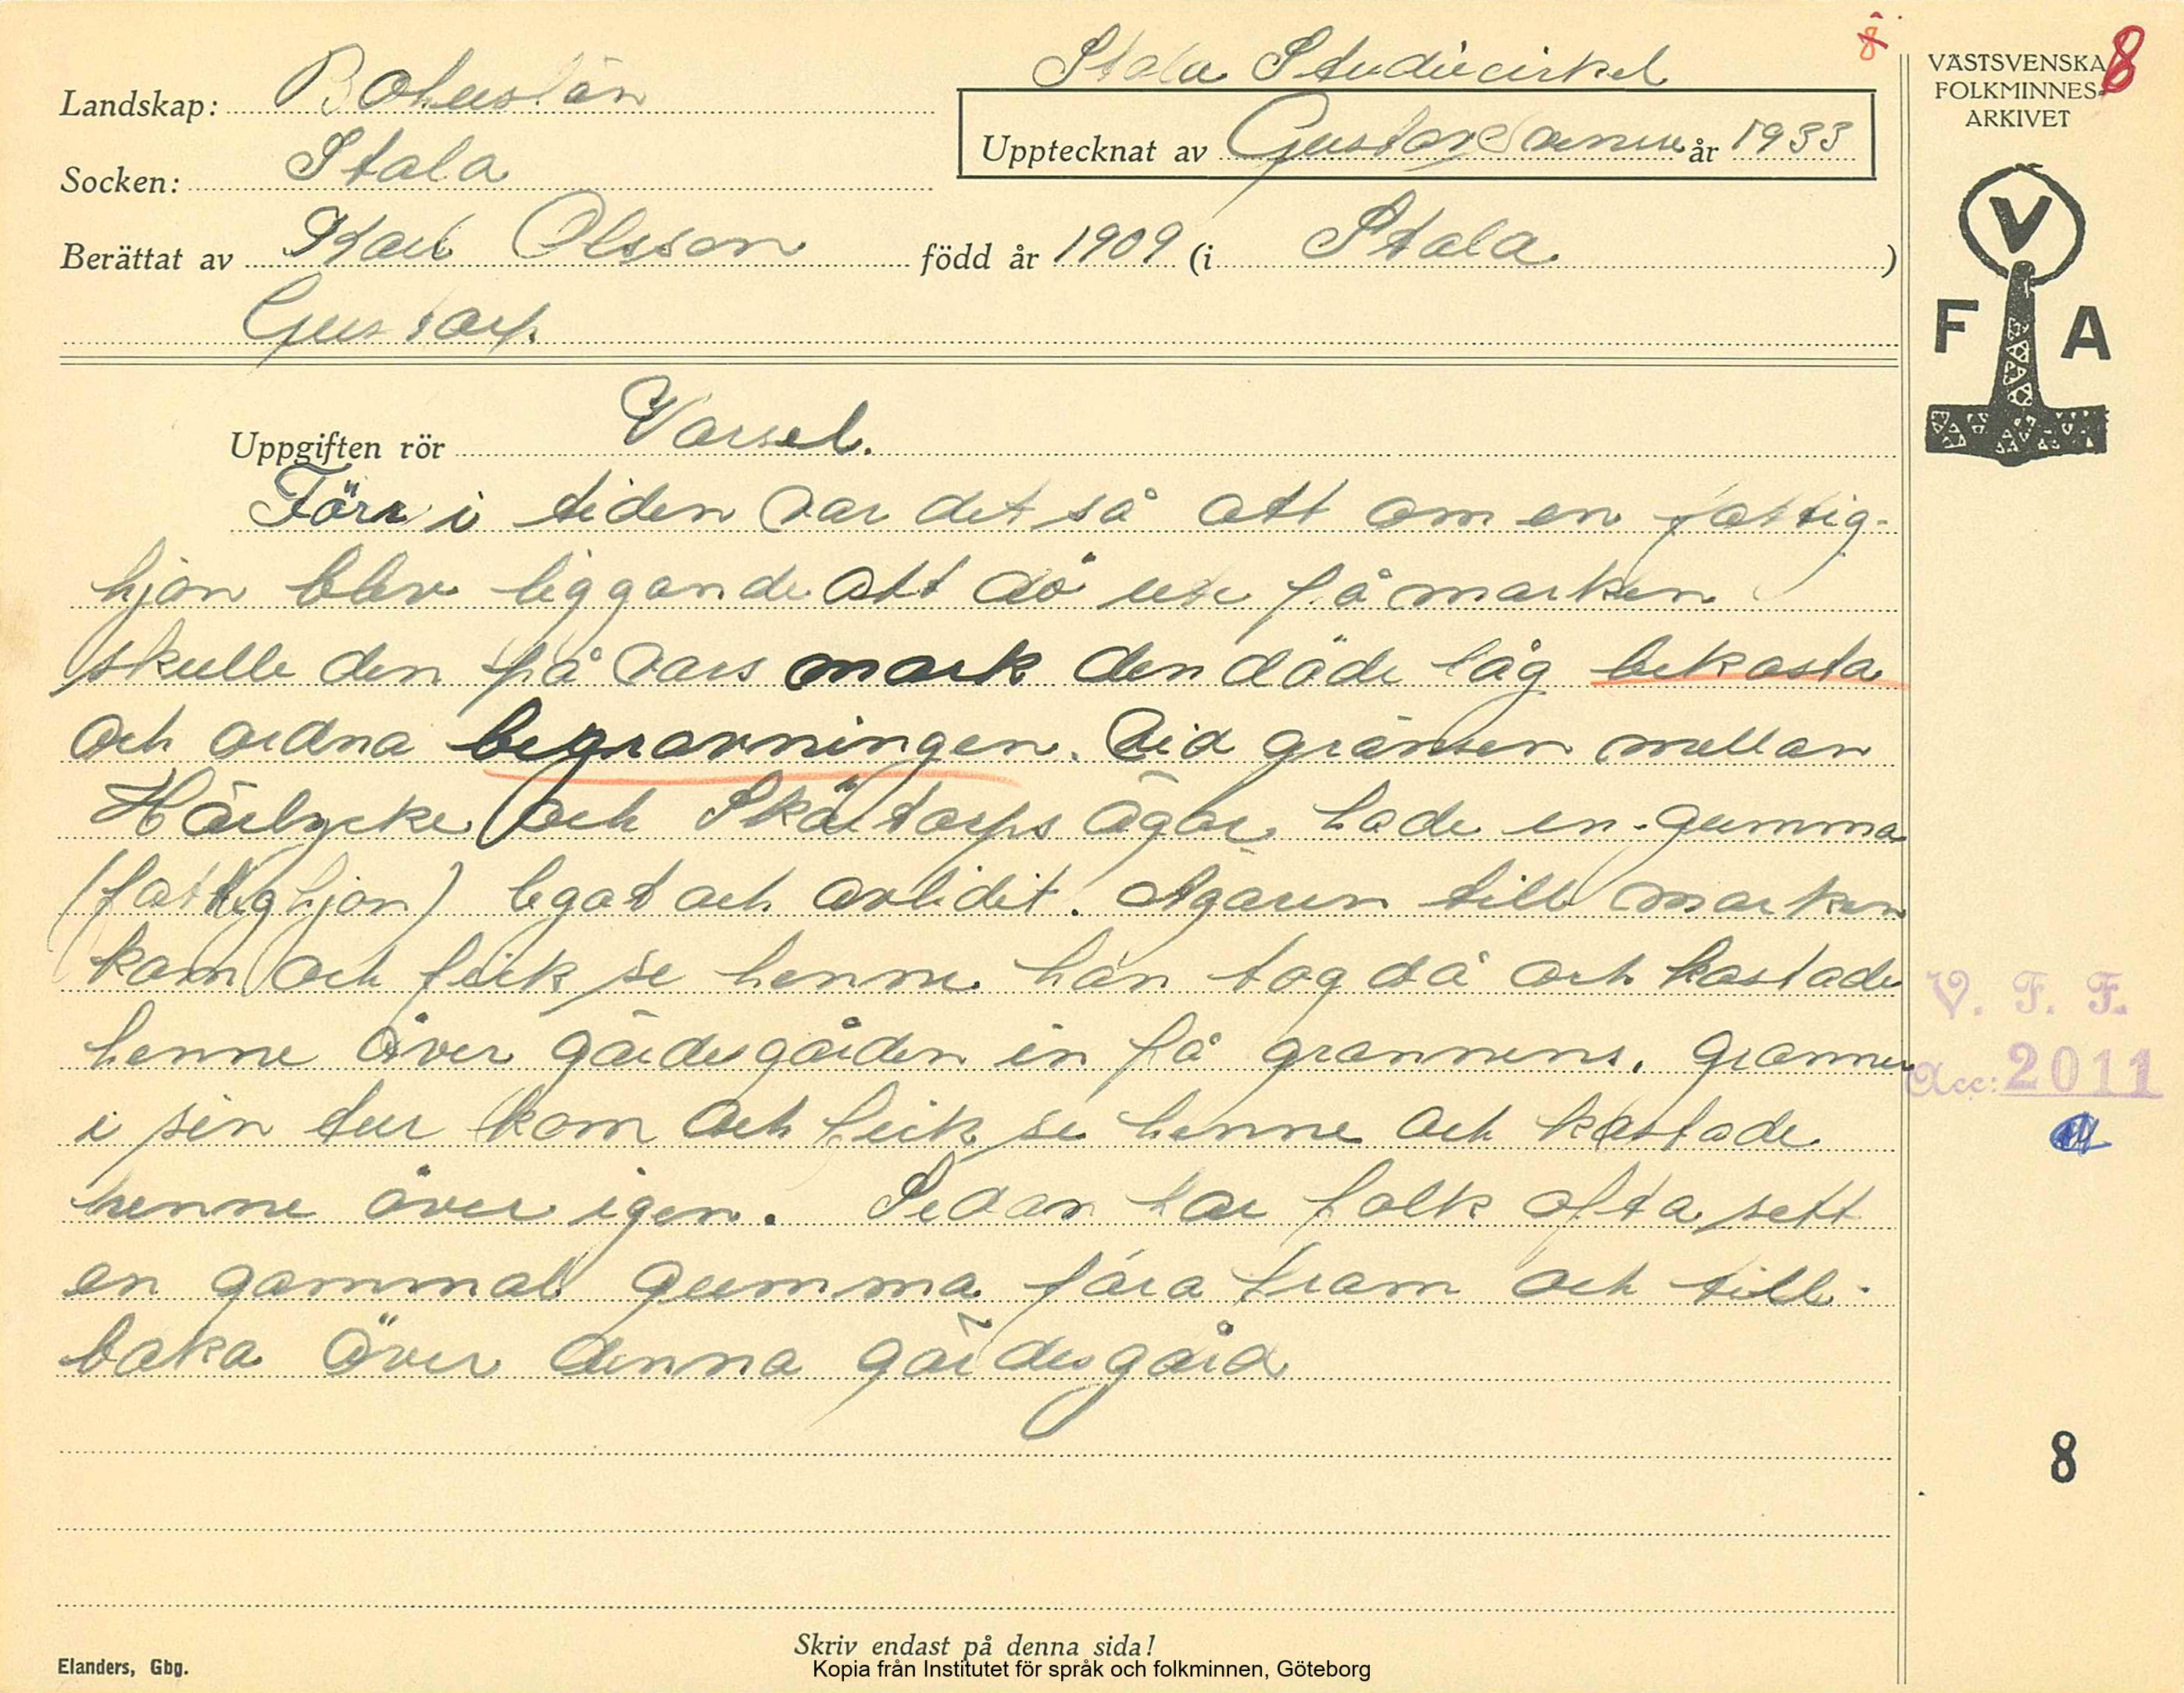 Stala Studiecirkel
8
VÄSTSVENSKA
FOLKMINNES-
ARKIVET
8
Landskap: Bohuslän
Upptecknat av Gustav år 1933
Socken: Stala
Berättat av Karl Olsson född år 1909 (i Stala.)
Gustorp.
V
F A
Uppgiften rör Varsel.
Förr i tiden var det så att om en fattig-
hjon blev liggande att dö ute på marken
skulle den på vars mark den döde låg bekosta
och ordna begravningen. Vid gränsen mellan
Härlycke och Skärtorps ägor hade en gumma
(fattighjon) legat och avlidit. Ägaren till marken
kom och feick se henne han tog då och kastade
henne över gärdesgården in på grannens. Grannen
i sin tur kom och feick se henne och kastade
henne över igen. Sedan har folk ofta sett
en gammal gumma fara fram och till-
baka över denna gärdesgård
V. F. F.
Acc: 2011
8
Skriv endast på denna sida!
Elanders, Gbg.
Kopia från Institutet för språk och folkminnen, Göteborg